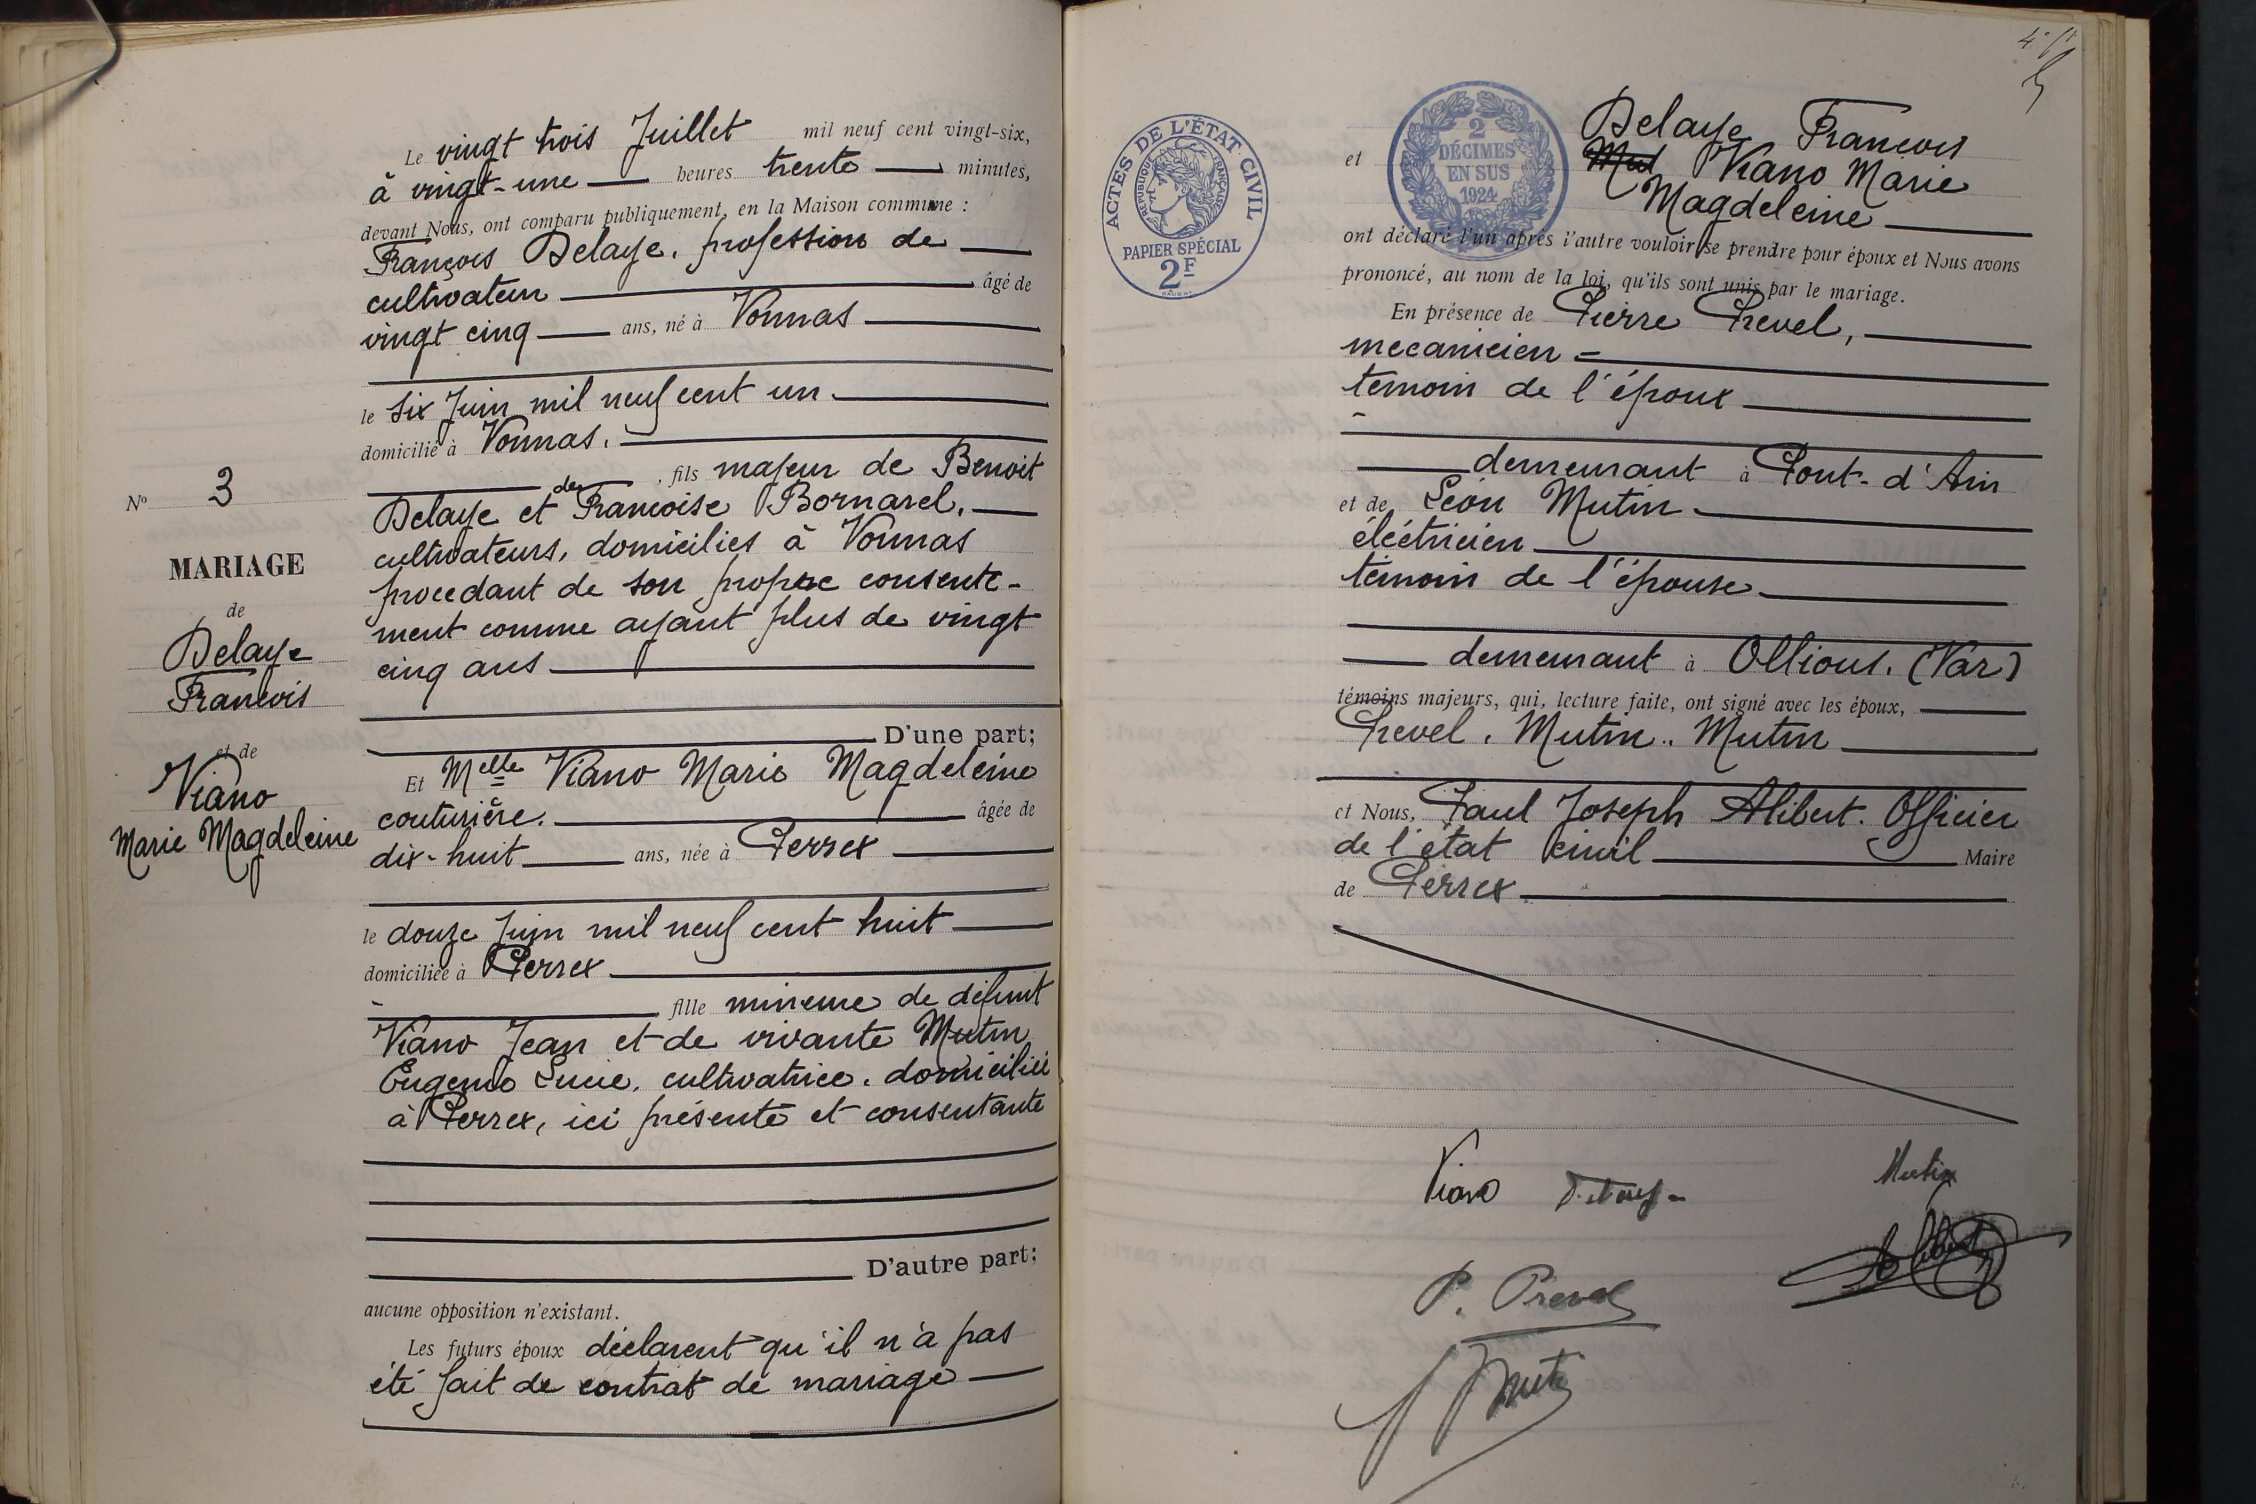 Le vingt trois Juillet mil neuf cent vingt-six,
à vingt-une heures trente minutes,
devant Nous, ont comparu publiquement, en la Maison commune :
François Delaye, profession de
cultivateur âgé de
vingt cinq ans, né à Vonnas
le six Juin mil neuf cent un.
domicilié à Vonnas.
, fils majeur de Benoit
Delaye et de Francoise Bornarel,
cultivateurs, domiciliés à Vonnas
procedant de son propre consente-
ment comme ayant plus de vingt
cinq ans
D'une part;
Et Melle Viano Marie Magdeleine
couturière. âgée de
dix-huit ans, née à Perrex
le douze Juin mil neuf cent huit
domiciliée à Perrex
fille mineure de défunt
Viano Jean et de vivante Mutin
Eugenie Lucie, cultivatrice, domiciliée
à Perrex, ici présente et consentante
D'autre part:
aucune opposition n'existant.
Les futurs époux déclarent qu'il n'a pas
été fait de contrat de mariage
No 3
MARIAGE
de
Delaye
Francois
et de
Viano
Marie Magdeleine
ACTES DE L'ÉTAT-CIVIL
RÉPUBLIQUE FRANÇAISE
PAPIER SPÉCIAL
2F
2
DÉCIMES
EN SUS
1924
Delaye Francois
et Viano Marie
Magdeleine
ont déclaré l'un après l'autre vouloir se prendre pour époux et Nous avons
prononcé, au nom de la loi, qu'ils sont unis par le mariage.
En présence de Pierre Prevel,
mecanicien
temoin de l'époux
demeurant à Pont-d'Ain
et de Léon Mutin
éléctricien
témoin de l'épouse
demeurant à Ollious. (Var)
témoins majeurs, qui, lecture faite, ont signé avec les époux,
Prevel, Mutin, Mutin
et Nous, Paul Joseph Alibert. Officier
de l'état civil Maire
de Perrex
Viano
Mutin
P. Prevel